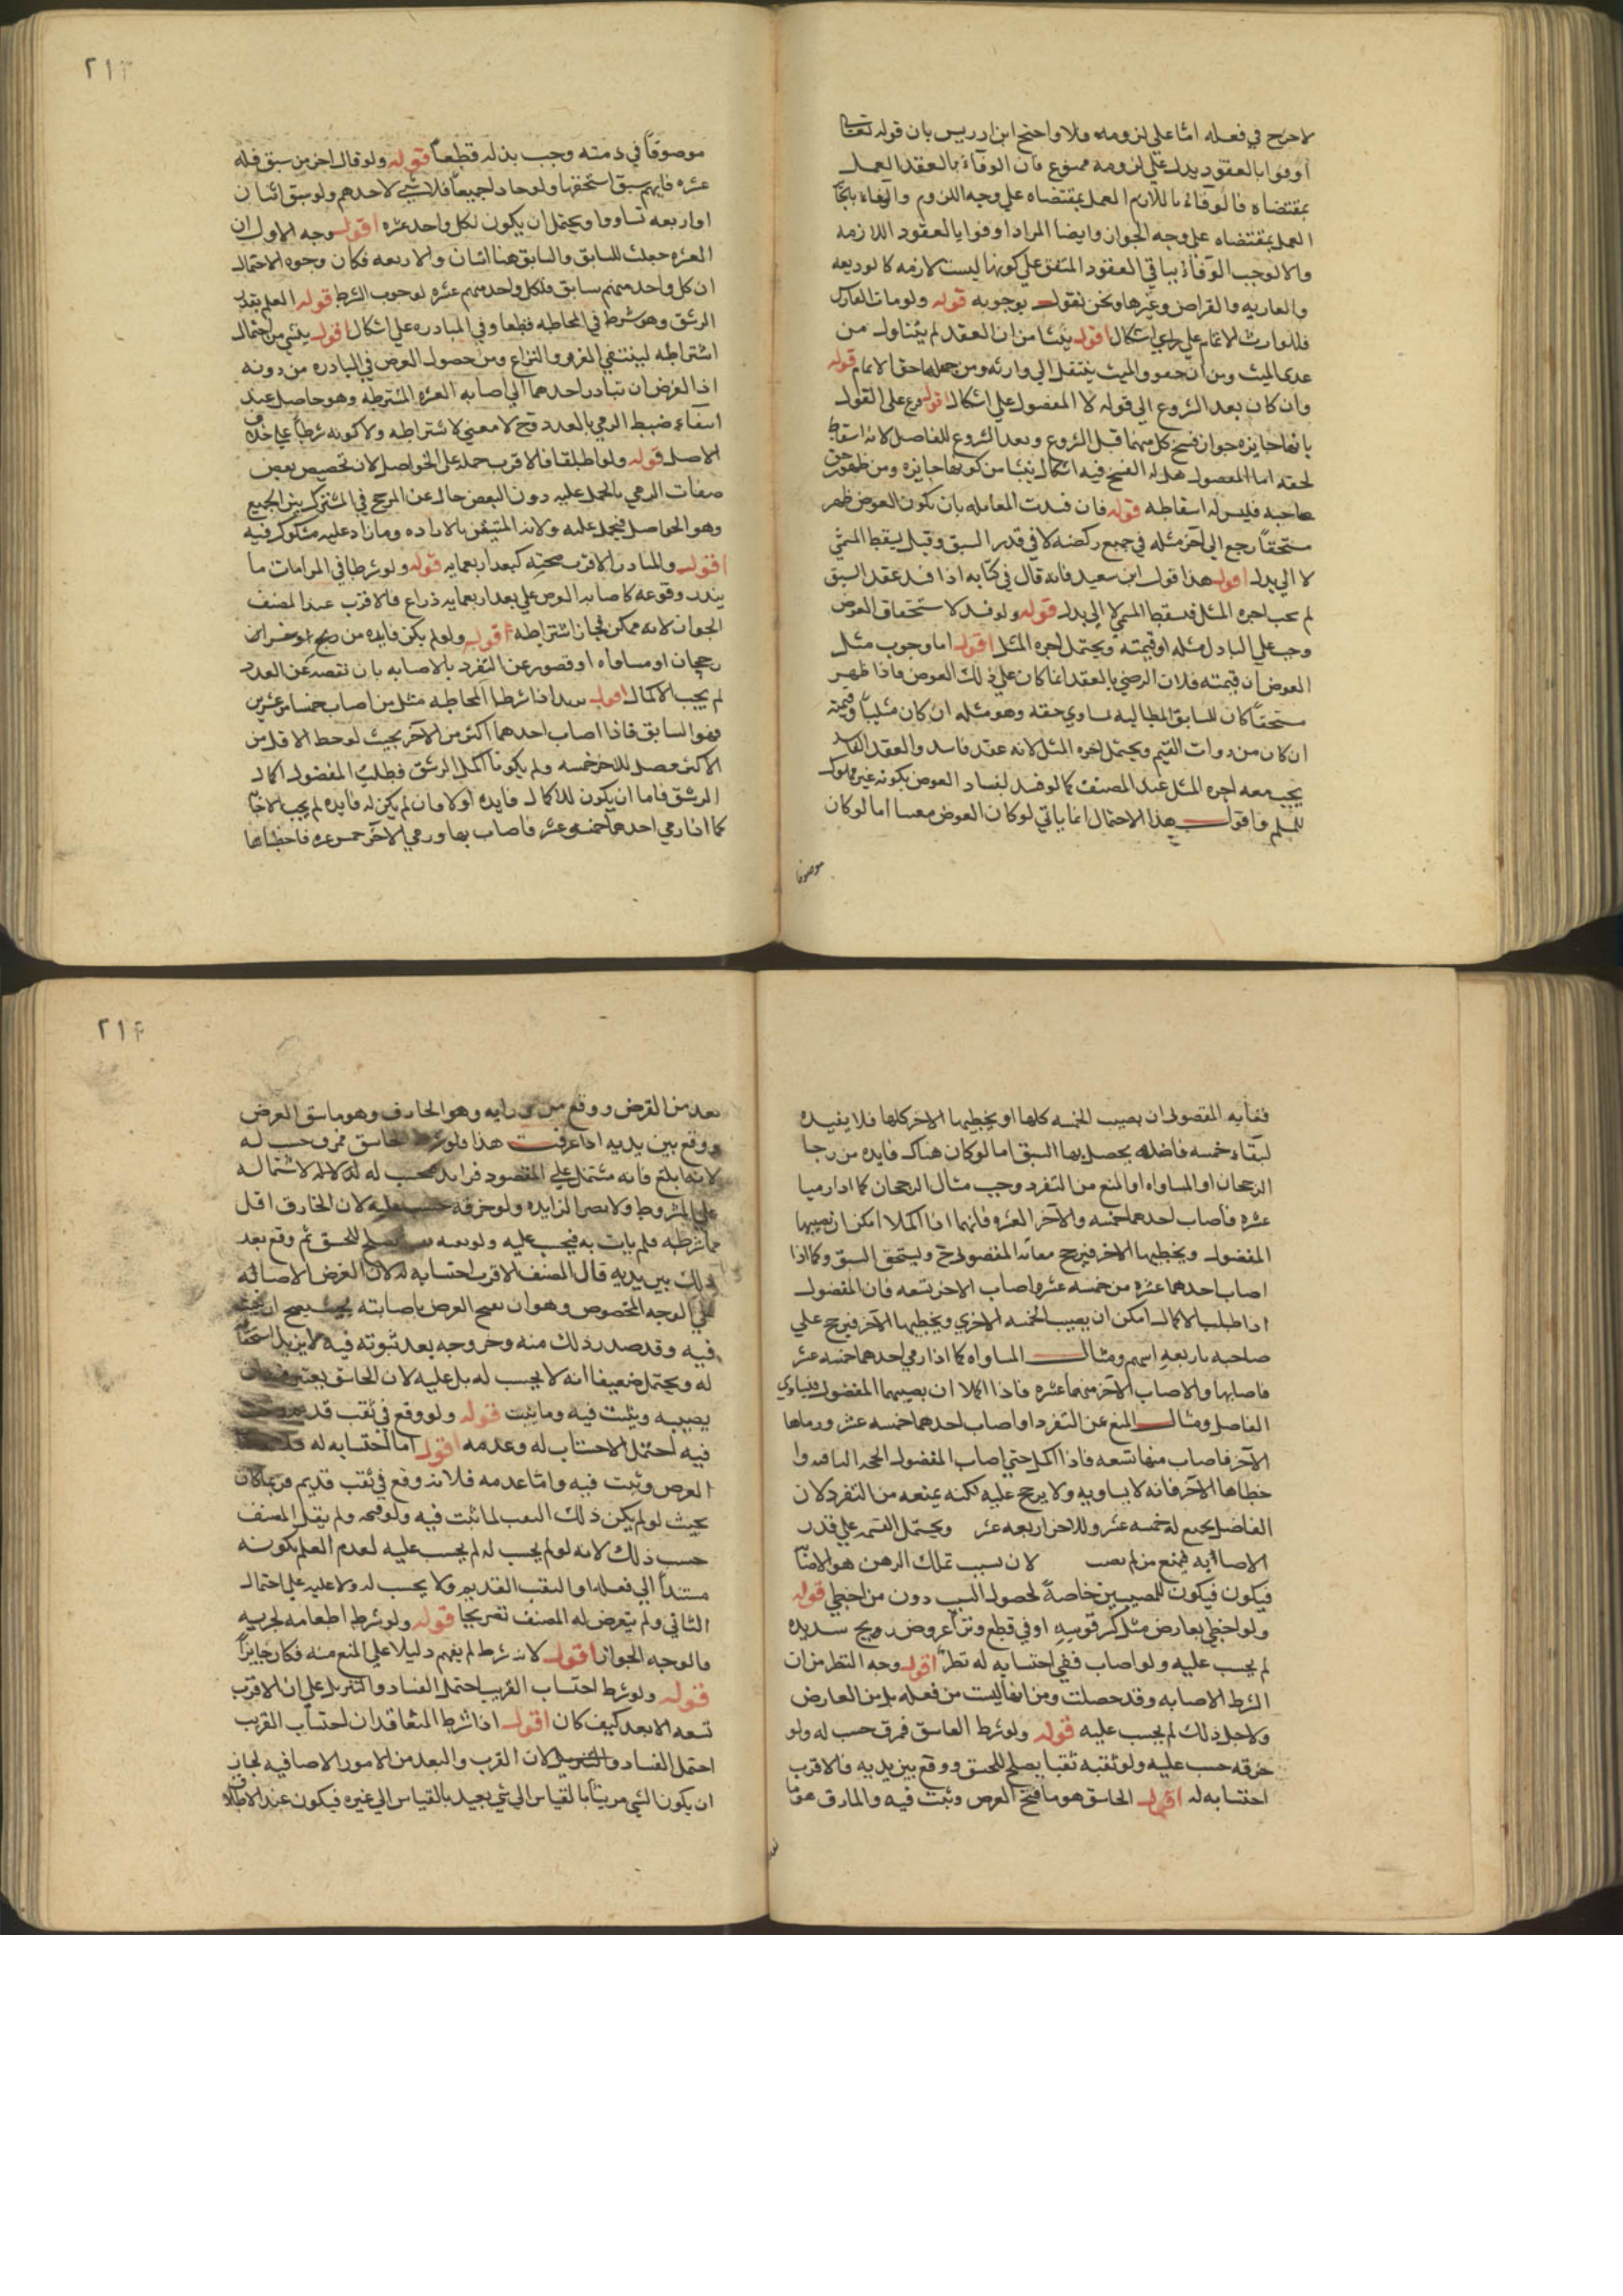 لا حرج في فعله امّا علي لزومه فلا واحتج ابن ادريس بان قوله تعالى
اوفوا بالعقود يدل علي لزومه ممنوع فان الوفاء بالعقد العمل
بمقتضاه فالوفاء باللازم العمل بمقتضاه علي وجه اللزوم والوفاء بالجائز
العمل بمقتضاه علي وجه الجواز وايضا المراد اوفوا بالعقود اللازمه
والا لوجب الوفاء بباقي العقود المتفق علي كونها ليست لازمه كالوديعه
والعاريه والقراض وغيرها ونحن نقول بوجوبه قوله ولو مات الفارس
فللوارث الاتمام علي راي اشكال اقول ينشا من ان العقد لم يتناول من
عدا الميت ومن انه حق والميت ينتقل الي وارثه ومن جعلها حق الاتمام قوله
وان كان بعد الشروع الي قوله لا المفضول علي اشكال اقول فرع علي القول
بانها جايزه جواز فسخ كل منهما قبل الشروع وبعد الشروع للفاضل لانه اسقاط
لحقه اما المفضول هل له الفسخ فيه اشكال ينشا من كونها جايزه ومن ظهور حق
صاحبه فليس له اسقاطه قوله فان فسدت المعامله بان يكون العوض ظهر
مستحقاً رجع الي اجر مثله في جميع ركضه لا في قدر السبق وقيل يسقط المسمّي
لا الي بدل اقول هذا قول ابن سعيد فانه قال في كتابه اذا فسد عقد السبق
لم يجب اجره المثل فسقط المسمي لا الي بدل قوله ولو فسد لاستحقاق العوض
وجب علي الباذل مثله او قيمته ويحتمل اجره المثل اقول اما وجوب مثل
العوض او قيمته فلان الرضي بالعقد انما كان علي ذلك العوض فاذا ظهر
مستحقاً كان للسابق المطالبه بمساوي حقه وهو مثله ان كان مثلياً وقيمته
ان كان من ذوات القيم ويحتمل اجره المثل لانه عقد فاسد والعقد الفاسد
يجب معه اجره المثل عند المصنف كما لو فسد لفساد العوض بكونه غير مملوك
للمسلم واقول هذا الاحتمال انما ياتي لو كان العوض معينا اما لو كان
موصوفا
٢١٣
موصوفاً في ذمته وجب بذله قطعاً قوله ولو قال اخر من سبق فله
عشره فايهم سبق استحقها ولو جاوا جميعاً فلا شيي لاحدهم ولو سبق اثنان
او اربعه تساووا ويحتمل ان يكون لكل واحد عشره اقول وجه الاول ان
العشره جعلت للسابق والسابق هنا اثنان والاربعه فكان وجوه الاحتمال
ان كل واحد منهم سابق فلكل واحد منهم عشره لوجوب الشرط قوله العلم بقدر
الرشق وهو شرط في المحاطه قطعا وفي المبادره علي اشكال اقول ينشي من احتمال
اشتراطه لينتفي الغرر والنزاع ومن حصول الغرض في المبادره من دونه
اذ الغرض ان يتبادر احدهما الي اصابه العشره المشترطه وهو حاصل عند
انتفاء ضبط الرمي بالعدد وح لا معني لاشتراطه ولا كونه شرطاً علي خلاف
الاصل قوله ولو اطلقا فالاقرب حمله علي الخواصل لان تخصيص بعض
صفات الرمي بالحمل عليه دون البعض خال عن المرجح في المشترك بين الجميع
وهو الخواصل فيحمل عليه ولانه المتيقن بالاراده وما زاد عليه مشكوك فيه
اقول والمبادر الاقرب صحته كبعد اربعمايه قوله ولو شرطا في المرامات ما
يندر وقوعه كاصابه الغرض علي بعد اربعمايه ذراع فالاقرب عند المصنف
الجواز لانه ممكن فجاز اشتراطه اقول ولو لم يكن فايده من
رجحان او مساواه او قصور عن التفرد بالاصابه بان نقصه عن العدد
لم يجب الاكمال اقول اذا شرطا المحاطه مثل من اصاب خمسا من عشرين
فهو السابق فاذا اصاب احدهما اكثر من الآخر بحيث لو حط الاقل من
الاكثر وصل للاخر خمسه ولم يكونا اكملا الرشق فطلب المفضول اكمال
الرشق فاما ان يكون للاكمال فايده اولا فان لم يكن له فايده لم يجب الاجابة
كما اذا رمي احدهما خمسه عشر فاصاب بها ورمي الآخر خمس عشره فاخطاها
فغايه المفضول ان يصيب الخمسه كلها او يخطيها الاخر كلها فلا يفيده
لبقاء خمسه فاضله يحصل بها السبق اما لو كان هناك فايده من رجا
الرجحان او المساواه او المنع من التفرد وجب مثال الرجحان كما اذا رميا
عشره فاصاب احدهما خمسه والآخر العشره فانهما اذا اكملا امكن ان يصيبها
المفضول ويخطيها الاخر فيرجح معانه المفضول ح ويستحق السبق وكما اذا
اصاب احدهما عشره من خمسه عشره اصاب الاخر تسعه فان المفضول
اذا طلب الاكمال امكن ان يصيب الخمسه الاخري ويخطيها الآخر فيرجح علي
صاحبه باربعه اسهم ومثال المساواه كما اذا رمي احدهما خمسه عشر
فاصابها والا صاب الآخر منها عشره فاذا اكملا ان يصيبهما المفضول فيساوي
الفاضل ومثال المنع عن التفرد او اصاب احدهما خمسه عشر ورماها
الآخر فاصاب منها تسعه فاذا اكمل حتي اصاب المفضول الخمسه الباقيه وا
خطاها الآخر فانه لا يساويه ولا يرجح عليه لكنه يمنعه من التفرد لان
الفاضل يجمع له خمسه عشر وللاخر اربعه عشر ويحتمل القسمه علي قدر
الاصابه فيمنع من لم يصب لان سبب تملك الرهن هو الاصابة
فيكون فيكون للمصيبين خاصةً لحصول السبب دون من اخطي قوله
ولو اخطي بعارض مثل كسر قوسه او في قطع وتر او عروض ريح شديده
لم يحسب عليه ولو اصاب ففي احتسابه له نظر اقول وجه النظر من ان
الشرط الاصابه وقد حصلت ومن انها ليست من فعله بل من العارض
ولاجل ذلك لم يحسب عليه قوله ولو شرط الخاسق فمرق حسب له ولو
خرقه حسب عليه ولو ثقبه ثقبا يصلح للخسق ووقع بين يديه فالاقرب
احتسابه له اقول الخاسق هو ما فتح الغرض وثبت فيه والمارق هو ما
٢١٤
نفد من الغرض ووقع من ورايه وهو الخارق وهو ما شق الغرض
ووقع بين يديه اذا عرفت هذا فلو شرط الخاسق فمرق حسب له
لانه ابلغ فانه مشتمل علي المقصود لاشتماله
علي المشروط ولا يضر الزايده ولو خرقه حسب عليه لان الخارق اقل
مما شرطه فلم يات به فيحسب عليه ولو ثقبه يصلح للخسق ثم وقع بعد
ذلك بين يديه قال المصنف الاقرب احتسابه له لان الغرض الاصابه
علي الوجه المخصوص وهو ان يفتح الغرض باصابته
فيه وقد صدر ذلك منه وخروجه بعد ثبوته فيه لا يزيل
له ويحتمل ضعيفا انه لا يحسب له بل عليه لان الخاسق يعتبر فيه ان
يصيبه ويثبت فيه وما يثبت قوله ولو وقع في ثقب قديم وثبت
فيه احتمل الاحتساب له وعدمه اقول اما احتسابه له
الغرض وثبت فيه وامّا عدمه فلانه وقع في ثقب قديم فربما كان
بحيث لو لم يكن ذلك الثقب لما ثبت فيه ولم يقل المصنف
حسب ذلك لانه لو لم يحسب له لم يحسب عليه لعدم العلم بكونه
مستنداً الي فعله او الثقب القديم ولا يحسب له ولا عليه علي احتمال
الثاني ولم يتعرض له المصنف تصريحا قوله ولو شرط اطعامه لحزبه
فالوجه الجواز اقول لانه شرط لم يفهم دليلا علي المنع منه فكان جايزاً
قوله ولو شرط احتساب القريب احتمل الفساد والتنزيل علي ان الاقرب
تسعه الابعد كيف كان اقول اذا شرط المتعاقدان احتساب القريب
احتمل الفساد والتنزيل لان القرب والبعد من الامور الاضافيه فجاز
ان يكون الشي قريبا بالقياس الي شي بعيد بالقياس الي غيره فيكون عند الاطلاق